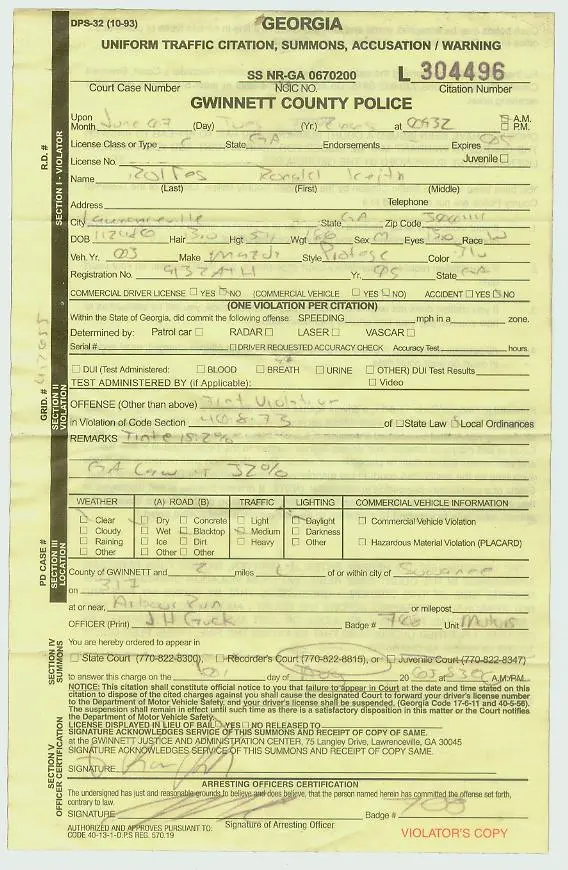 DPS-32 (10-93) GEORGIA
UNIFORM TRAFFIC CITATION, SUMMONS, ACCUSATION / WARNING
SS NR-GA 0670200 L 304496
Court Case Number NCIC NO. Citation Number
GWINNETT COUNTY POLICE
R.D. #
SECTION I - VIOLATOR
Upon A.M.
Month June 07 (Day) (Yr.) at 0932 P.M.
License Class or Type C State GA Endorsements Expires 05
License No. Juvenile
Name Rolfes Ronald Keith
(Last) (First) (Middle)
Address Telephone
City State GA Zip Code
DOB Hair Hgt Wgt Sex M Eyes Race W
Veh. Yr. 003 Make Mazda Style Protege Color Blu
Registration No. Yr. 05 State GA
COMMERCIAL DRIVER LICENSE YES NO (COMMERCIAL VEHICLE YES NO) ACCIDENT YES NO
(ONE VIOLATION PER CITATION)
Within the State of Georgia, did commit the following offense: SPEEDING mph in a zone.
Determined by: Patrol car RADAR LASER VASCAR
Serial # DRIVER REQUESTED ACCURACY CHECK Accuracy Test hours.
GRID. #
SECTION II VIOLATION
DUI (Test Administered: BLOOD BREATH URINE OTHER) DUI Test Results
TEST ADMINISTERED BY (if Applicable): Video
OFFENSE (Other than above) Tint Violation
in Violation of Code Section 40.8.73 of State Law Local Ordinances
REMARKS Tint 15.2%
GA Law is 32%
PD CASE #
SECTION III LOCATION
WEATHER (A) ROAD (B) TRAFFIC LIGHTING COMMERCIAL VEHICLE INFORMATION
Clear Dry Concrete Light Daylight Commercial Vehicle Violation
Cloudy Wet Blacktop Medium Darkness
Raining Ice Dirt Heavy Other Hazardous Material Violation (PLACARD)
Other Other Other
County of GWINNETT and 2 miles of or within city of Suwanee
on 317
at or near, Arbour Run or milepost
OFFICER (Print) Badge # 708 Unit
SECTION IV SUMMONS
You are hereby ordered to appear in
State Court (770-822-8300), Recorder's Court (770-822-8815), or Juvenile Court (770-822-8347)
to answer this charge on the day of 20 03 A.M./P.M.
NOTICE: This citation shall constitute official notice to you that failure to appear in Court at the date and time stated on this
citation to dispose of the cited charges against you shall cause the designated Court to forward your driver's license number
to the Department of Motor Vehicle Safety, and your driver's license shall be suspended. (Georgia Code 17-6-11 and 40-5-56).
The suspension shall remain in effect until such time as there is a satisfactory disposition in this matter or the Court notifies
the Department of Motor Vehicle Safety.
LICENSE DISPLAYED IN LIEU OF BAIL YES NO RELEASED TO
SIGNATURE ACKNOWLEDGES SERVICE OF THIS SUMMONS AND RECEIPT OF COPY OF SAME.
at the GWINNETT JUSTICE AND ADMINISTRATION CENTER, 75 Langley Drive, Lawrenceville, GA 30045
SIGNATURE ACKNOWLEDGES SERVICE OF THIS SUMMONS AND RECEIPT OF COPY OF SAME.
SIGNATURE
SECTION V OFFICER CERTIFICATION
ARRESTING OFFICERS CERTIFICATION
The undersigned has just and reasonable grounds to believe and does believe, that the person named herein has committed the offense set forth,
contrary to law.
SIGNATURE Badge # 708
Signature of Arresting Officer
AUTHORIZED AND APPROVES PURSUANT TO:
CODE 40-13-1-D.P.S REG. 570.19
VIOLATOR'S COPY